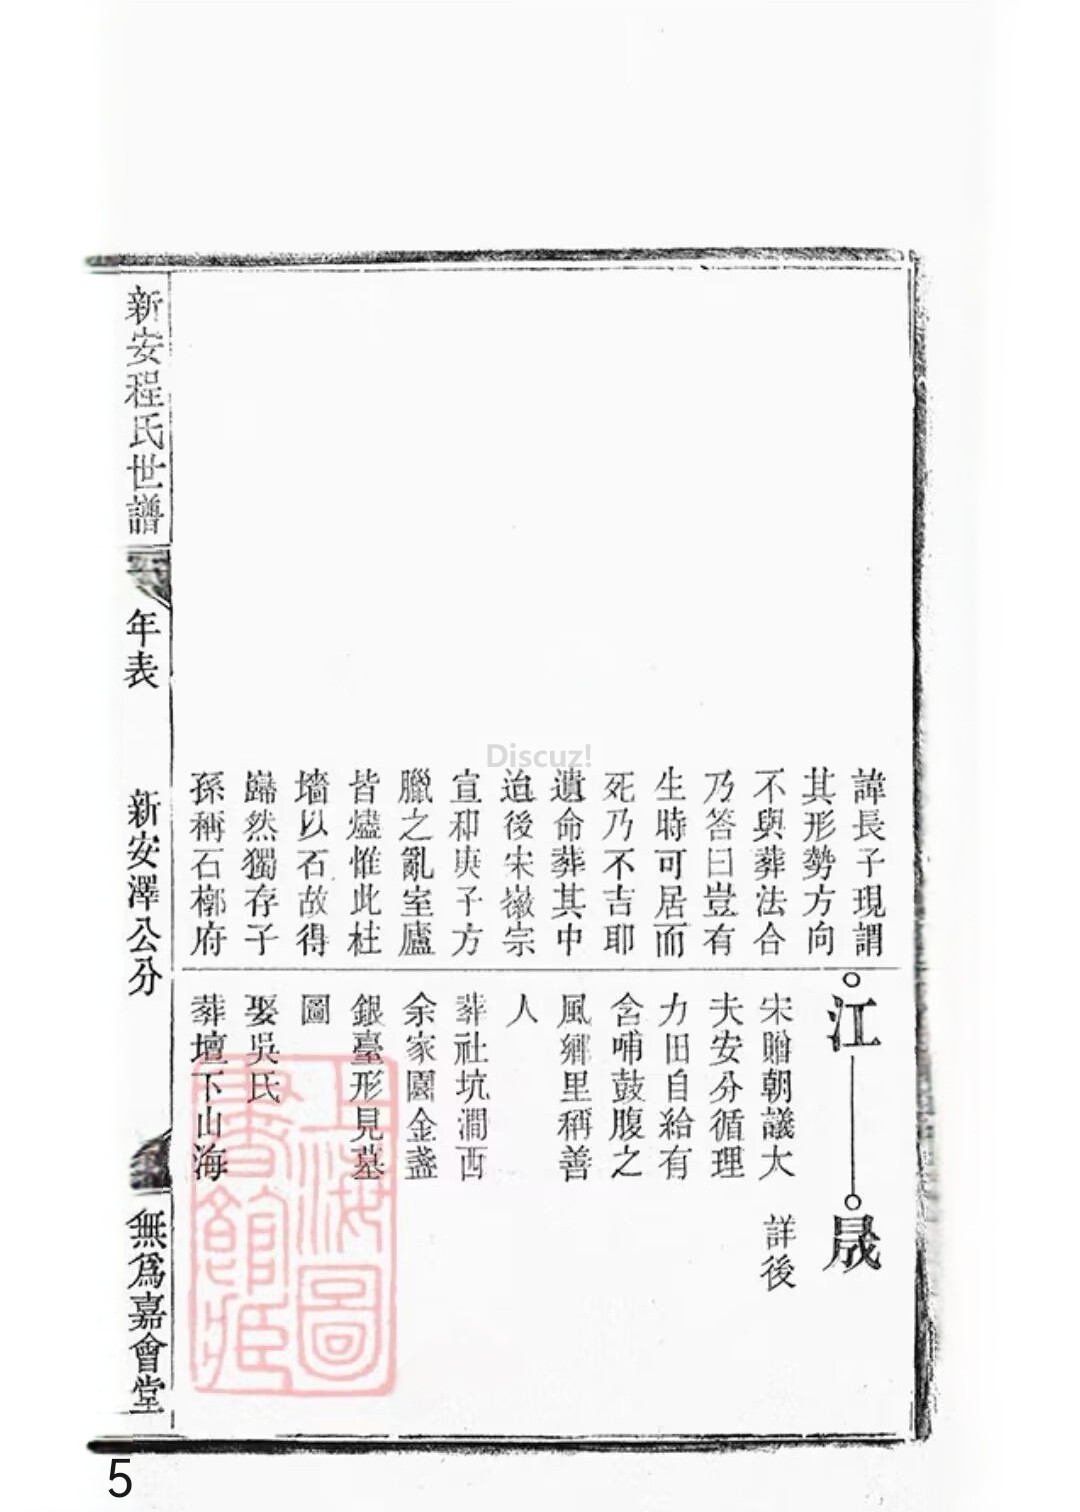 諱長子現謂
其形勢方向
不與葬法合
乃答曰豈有
生時可居而
死乃不吉耶
遺命葬其中
迨後宋徽宗
宣和庚子方
臘之亂室廬
皆燼惟此柱
墻以石故得
巋然獨存子
孫稱石槨府
江
晟
宋贈朝議大
夫安分循理
力田自給有
含哺鼓腹之
風鄉里稱善
人
葬社坑澗西
余家園金盞
銀臺形見墓
圖
娶吳氏
葬壇下山海
詳後
新安程氏世譜
年表
新安澤公分
無爲嘉會堂
上海圖
書館藏
Discuz!
5